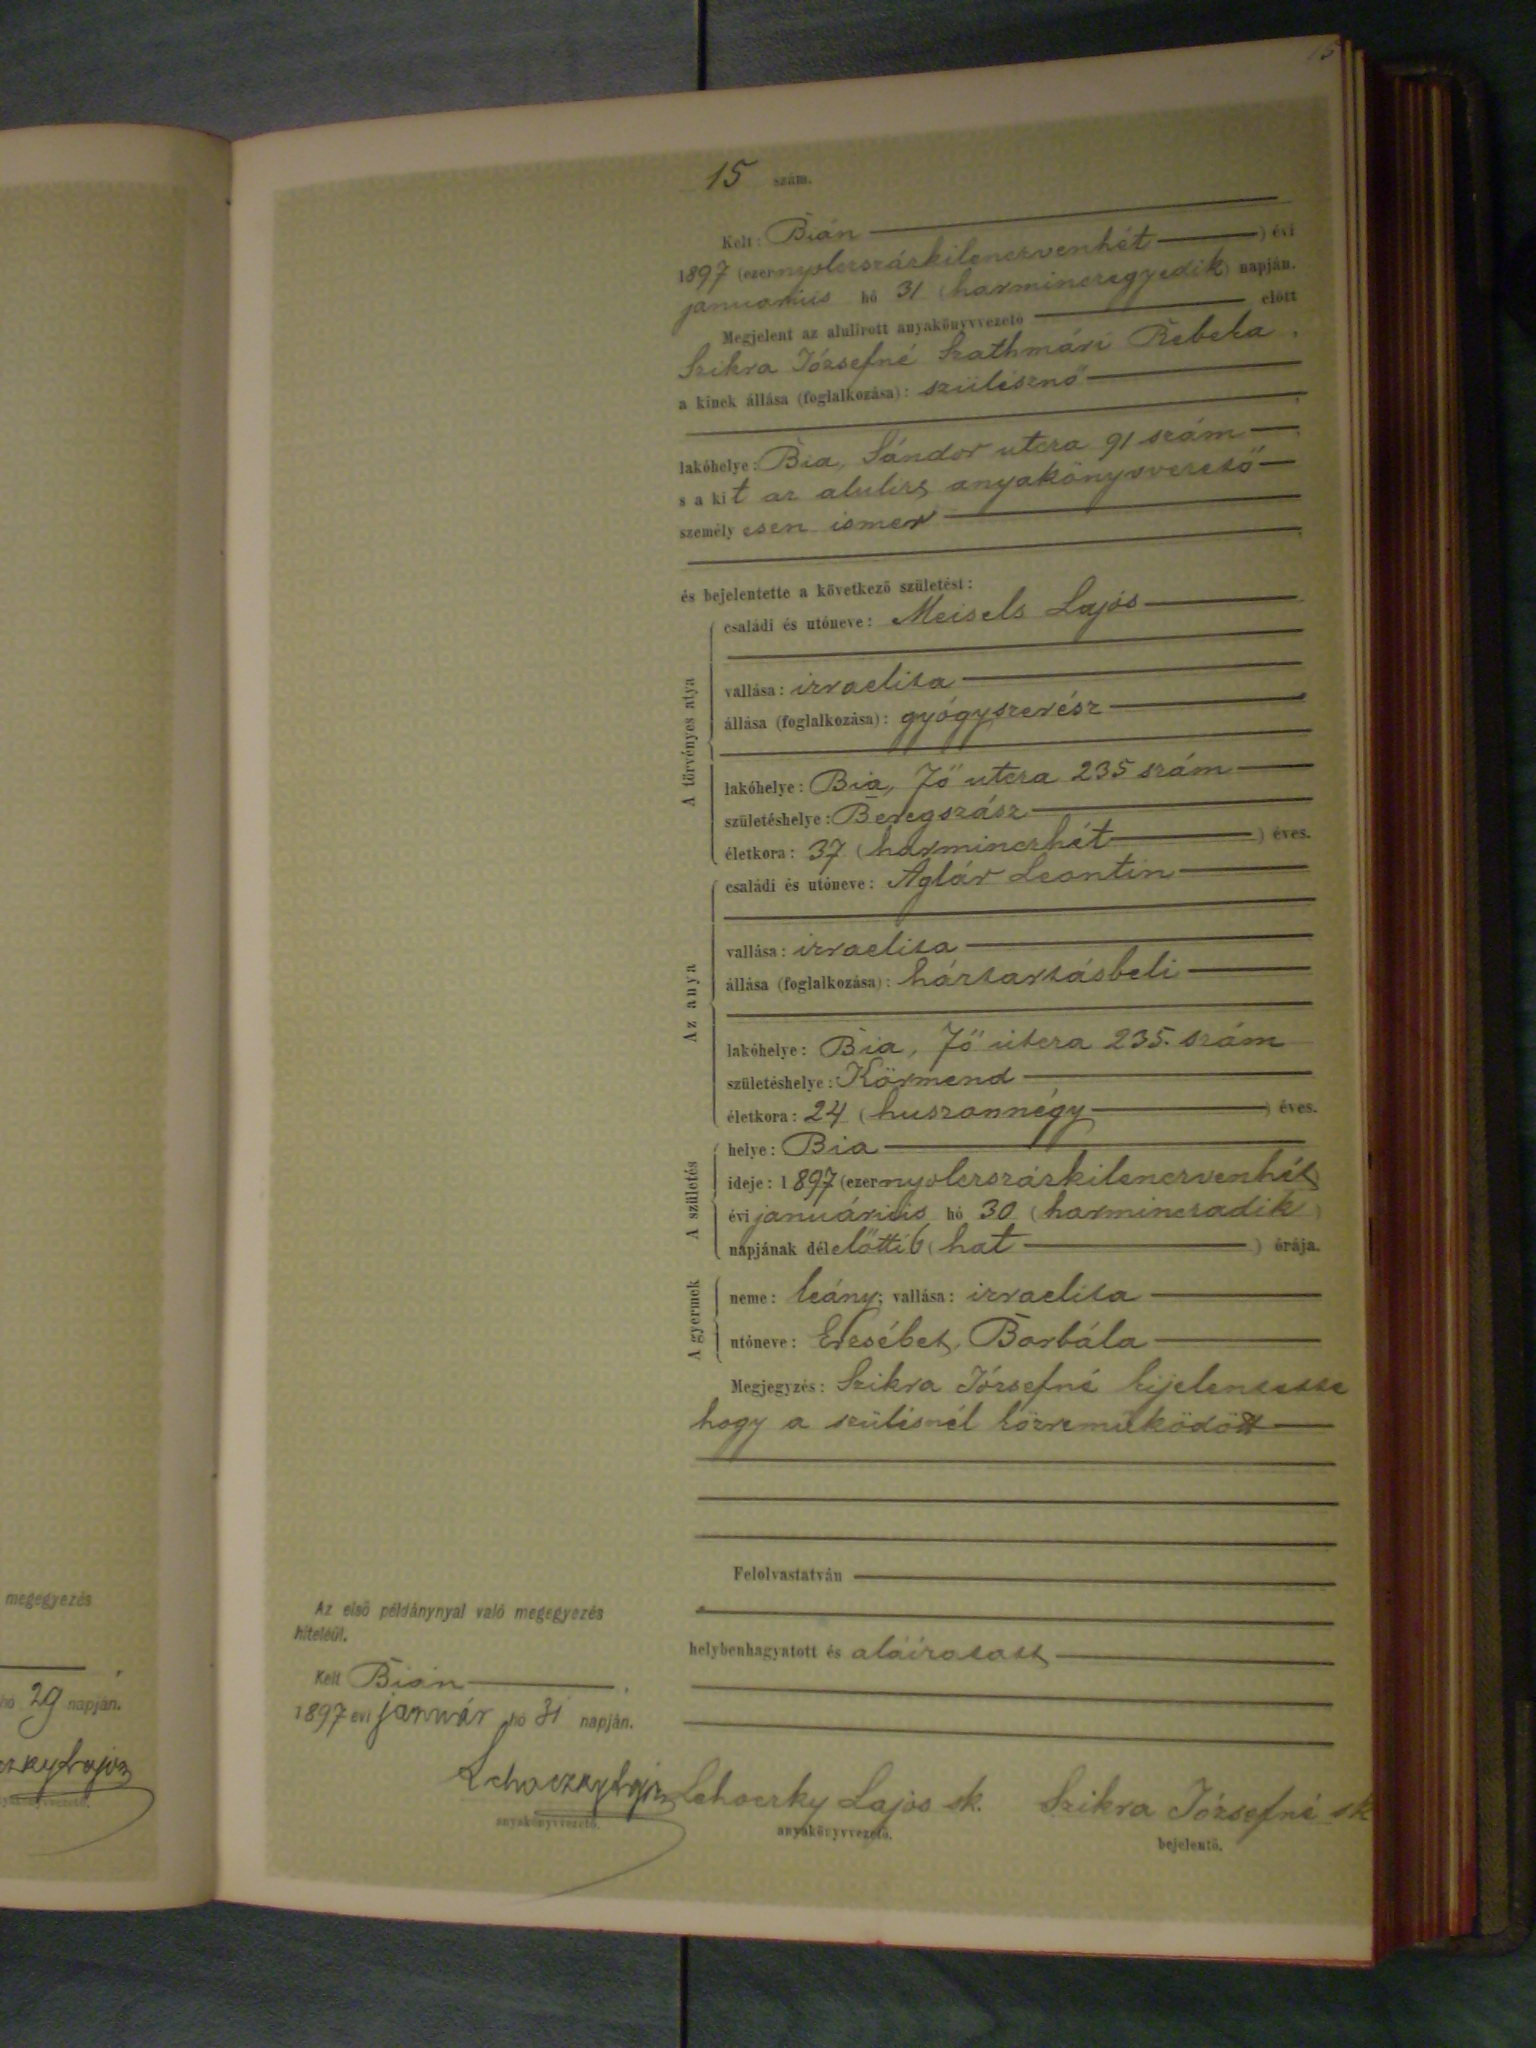 15
15 szám.
Kelt: Bián
1897 (ezernyolcszázkilenczvenhét) évi
januárius hó 31 (harminczegyedik) napján.
Megjelent az alulirott anyakönyvvezető előtt
Szikra Józsefné Szathmári Rebeka,
a kinek állása (foglalkozása): szülésznő
lakóhelye: Bia, Sándor utcza 91 szám
s a kit az alulirt anyakönyvvezető
személyesen ismer
és bejelentette a következő születést:
A törvényes atya
családi és utóneve: Meisels Lajos
vallása: izraelita
állása (foglalkozása): gyógyszerész
lakóhelye: Bia, Fő utcza 235 szám
születéshelye: Beregszász
életkora: 37 (harminczhét) éves.
Az anya
családi és utóneve: Aglár Leontin
vallása: izraelita
állása (foglalkozása): háztartásbeli
lakóhelye: Bia, Fő utcza 235. szám
születéshelye: Körmend
életkora: 24 (huszonnégy) éves.
A születés
helye: Bia
ideje: 1897 (ezernyolcszázkilenczvenhét)
évi januárius hó 30 (harminczadik)
napjának délelőtti 6 (hat) órája.
A gyermek
neme: leány; vallása: izraelita
utóneve: Erzsébet, Borbála
Megjegyzés: Szikra Józsefné kijelentette
hogy a szülésnél közreműködött
Felolvastatván
helybenhagyatott és aláiratott
Lehoczky Lajos sk. Szikra Józsefné sk
anyakönyvvezető. bejelentő.
Az első példánynyal való megegyezés
hiteléül.
Kelt Bián
1897 évi január hó 31 napján.
Lehoczky Lajos
anyakönyvvezető.
megegyezés
hó 29 napján.